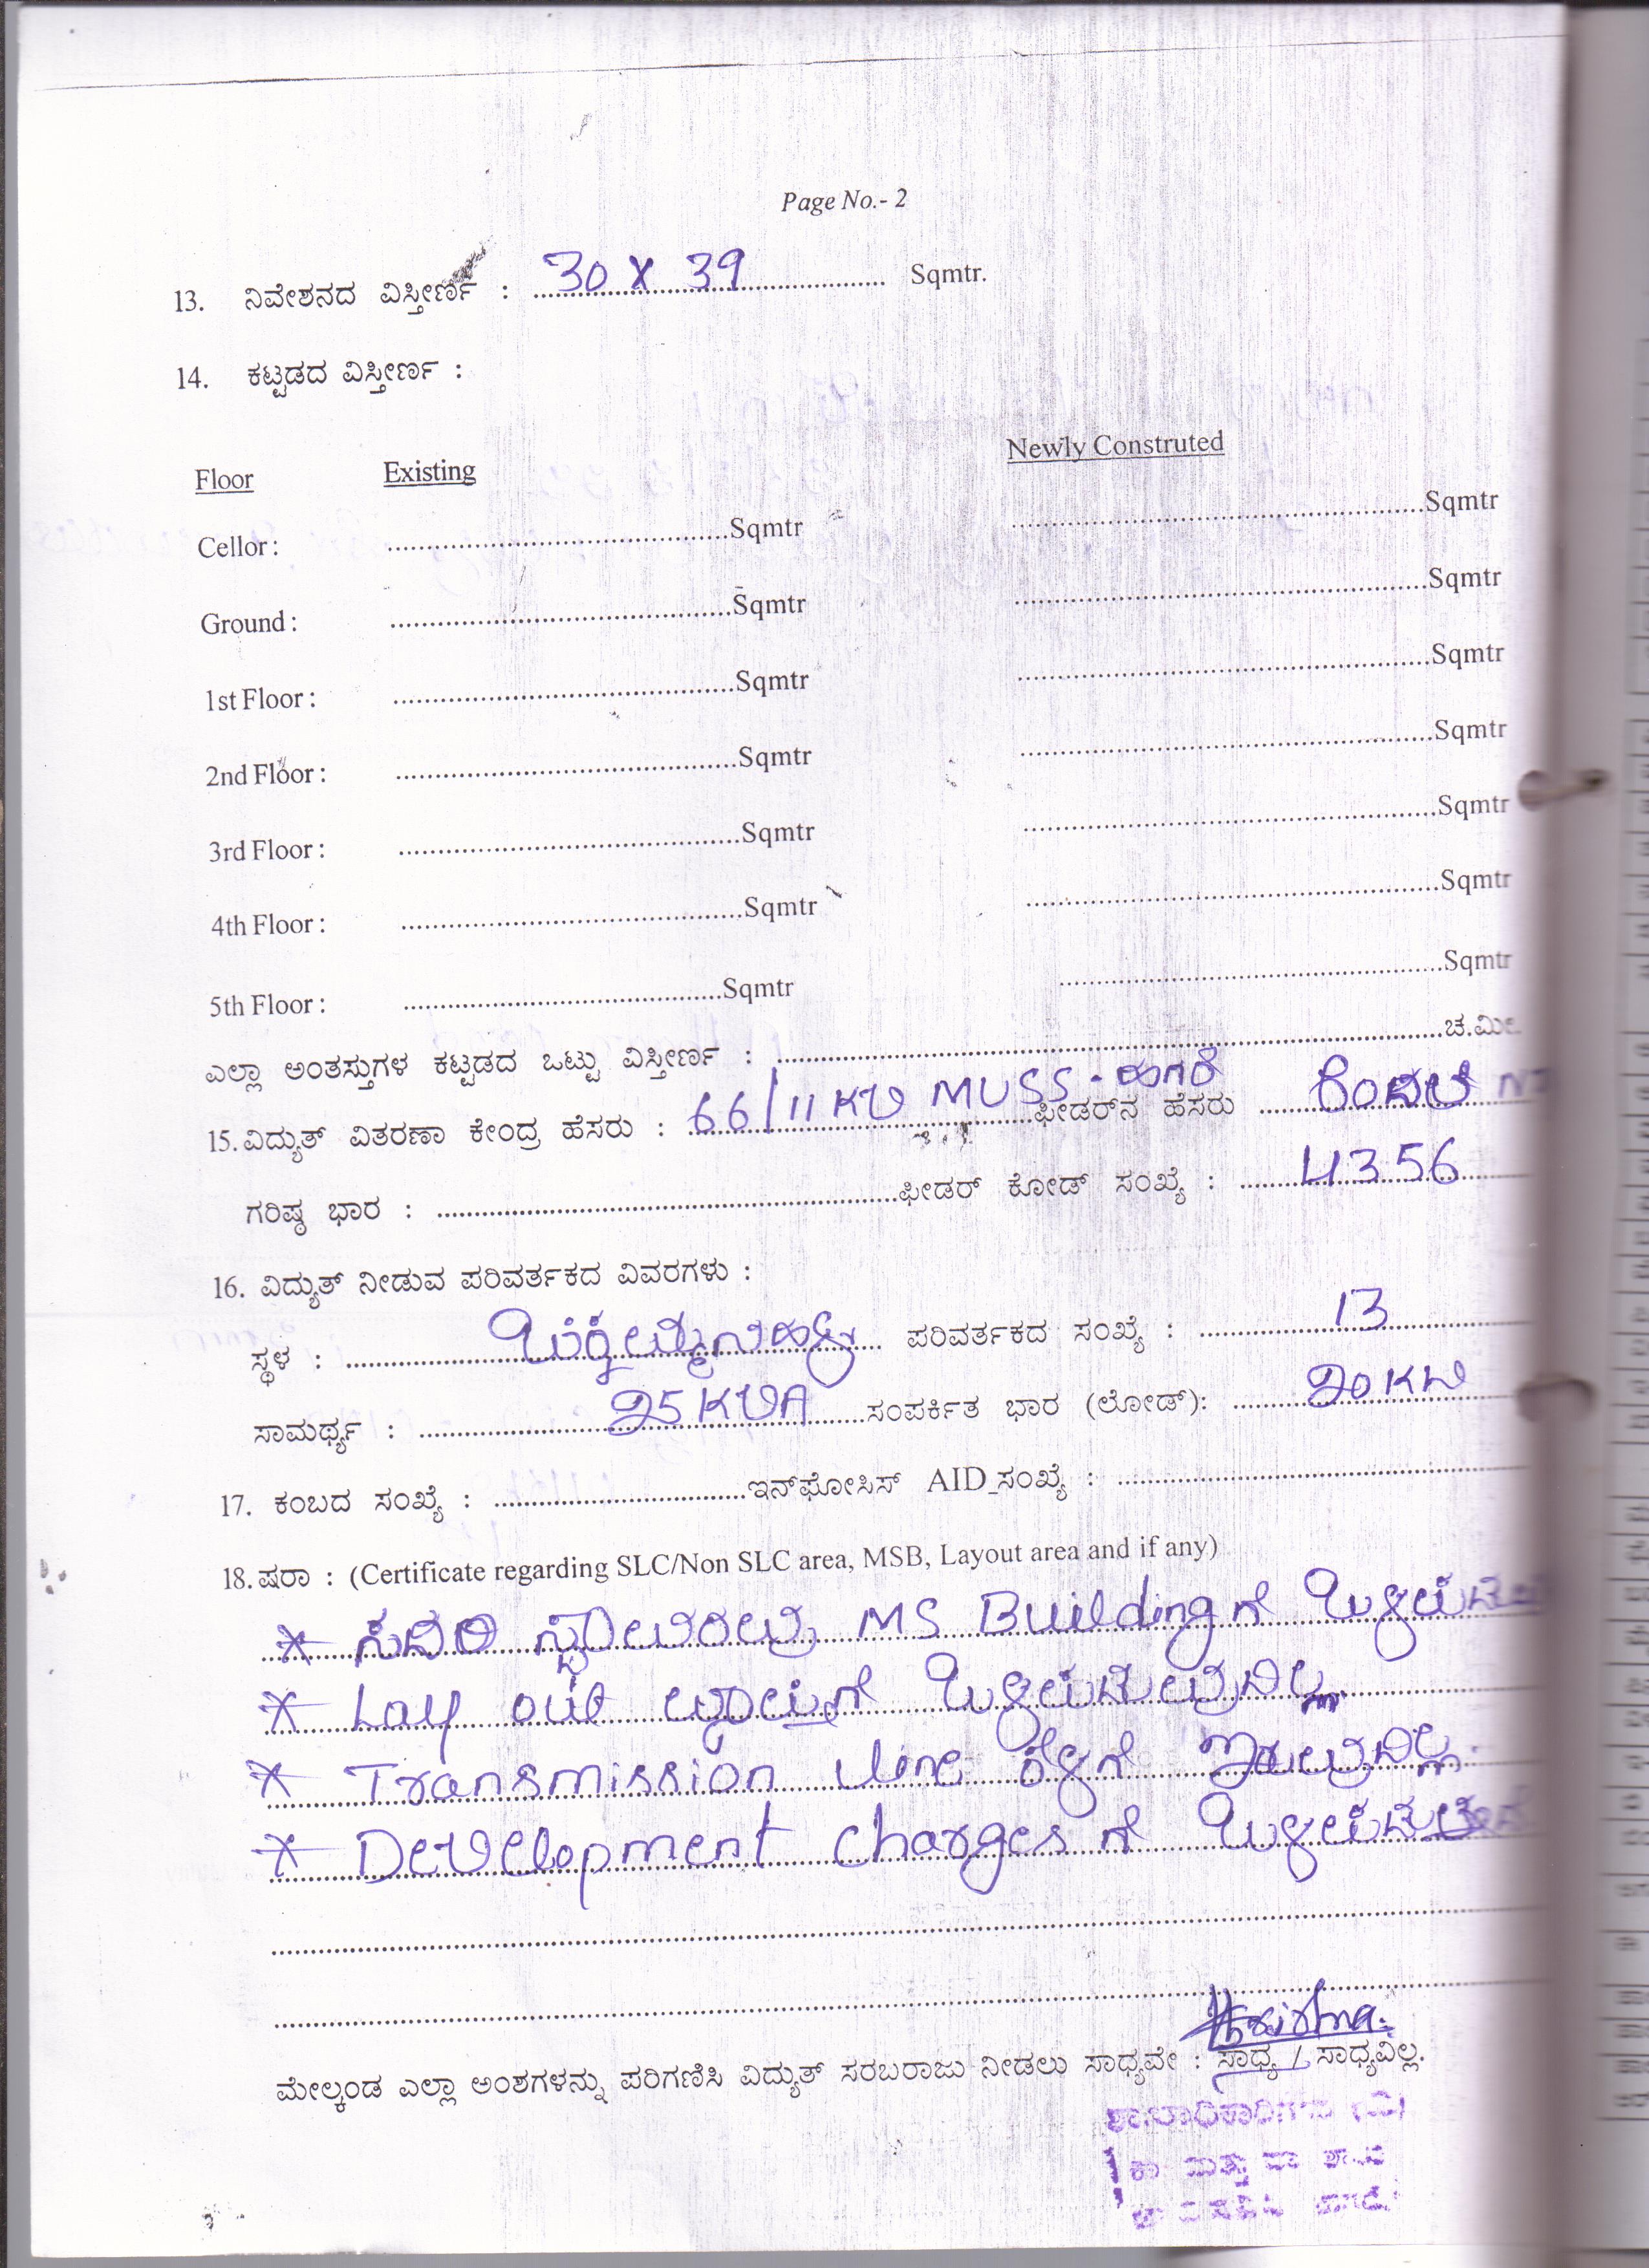 Page No.- 2
13. ನಿವೇಶನದ ವಿಸ್ತೀರ್ಣ : 30 X 39 Sqmtr.
14. ಕಟ್ಟಡದ ವಿಸ್ತೀರ್ಣ :
Floor Existing Newly Construted
Cellor : Sqmtr Sqmtr
Ground : Sqmtr Sqmtr
1st Floor : Sqmtr Sqmtr
2nd Floor : Sqmtr Sqmtr
3rd Floor : Sqmtr Sqmtr
4th Floor : Sqmtr Sqmtr
5th Floor : Sqmtr Sqmtr
ಎಲ್ಲಾ ಅಂತಸ್ತುಗಳ ಕಟ್ಟಡದ ಒಟ್ಟು ವಿಸ್ತೀರ್ಣ : ಚ.ಮೀ.
15. ವಿದ್ಯುತ್ ವಿತರಣಾ ಕೇಂದ್ರ ಹೆಸರು : 66/11 KV MUSS - ಹಗರೆ ಫೀಡರ್‌ನ ಹೆಸರು
ಗರಿಷ್ಠ ಭಾರ : ಫೀಡರ್ ಕೋಡ್ ಸಂಖ್ಯೆ : 4356
16. ವಿದ್ಯುತ್ ನೀಡುವ ಪರಿವರ್ತಕದ ವಿವರಗಳು :
ಸ್ಥಳ : ಪರಿವರ್ತಕದ ಸಂಖ್ಯೆ : 13
ಸಾಮರ್ಥ್ಯ : 25 KVA ಸಂಪರ್ಕಿತ ಭಾರ (ಲೋಡ್): 20 KW
17. ಕಂಬದ ಸಂಖ್ಯೆ : ಇನ್‌ಫೋಸಿಸ್ AID_ಸಂಖ್ಯೆ :
18. ಷರಾ : (Certificate regarding SLC/Non SLC area, MSB, Layout area and if any)
* ಸದರಿ ಸ್ಥಾವರವು MS Building ಗೆ
* Lay out ವ್ಯಾಪ್ತಿಗೆ ಒಳಪಡುವುದಿಲ್ಲ
* Transmission line ಕೆಳಗೆ ಇರುವುದಿಲ್ಲ.
* Development charges ಗೆ
Krishna.
ಮೇಲ್ಕಂಡ ಎಲ್ಲಾ ಅಂಶಗಳನ್ನು ಪರಿಗಣಿಸಿ ವಿದ್ಯುತ್ ಸರಬರಾಜು ನೀಡಲು ಸಾಧ್ಯವೇ : ಸಾಧ್ಯ / ಸಾಧ್ಯವಿಲ್ಲ.